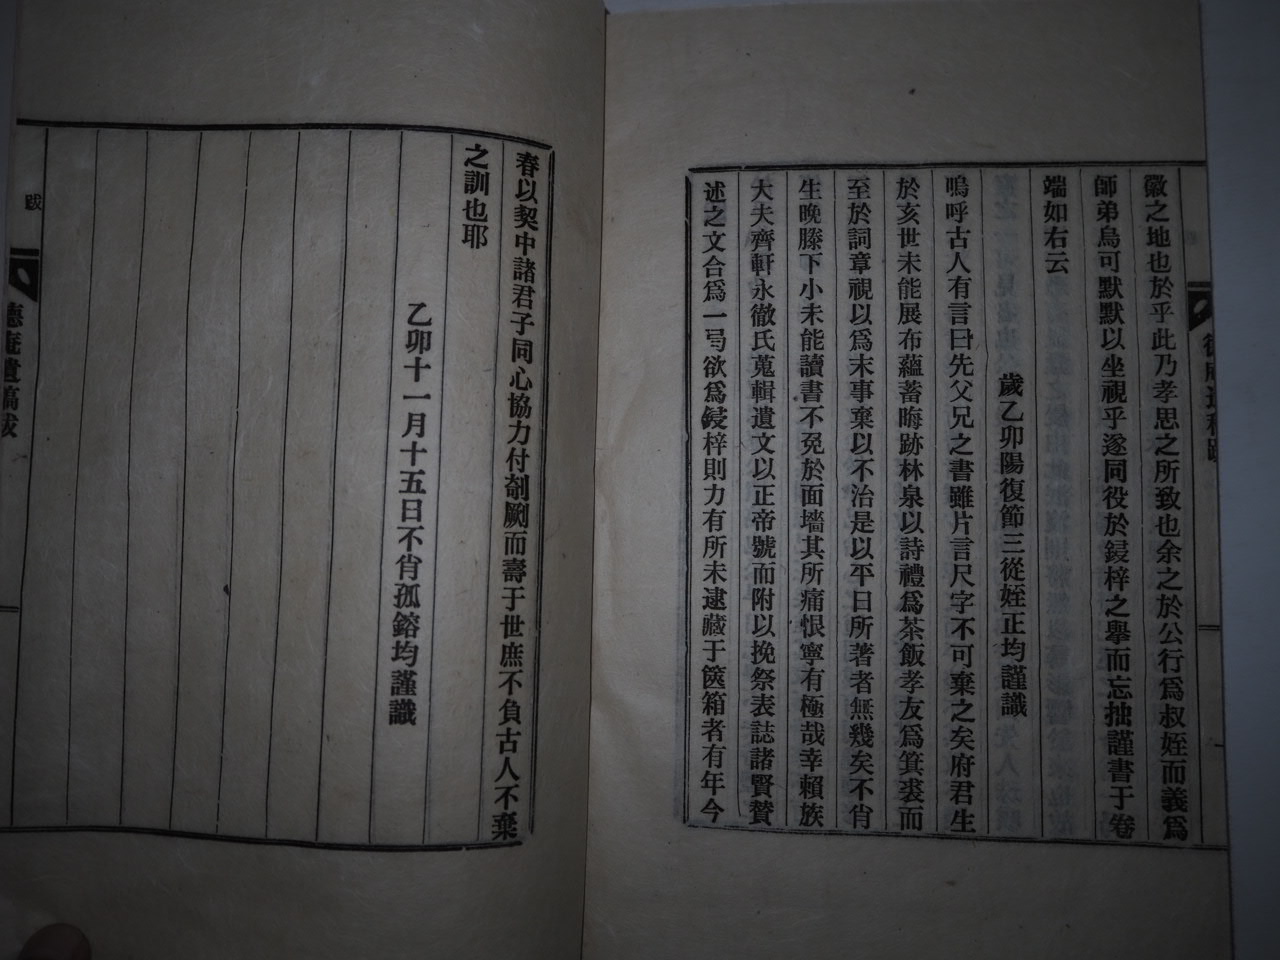 徽之地也於乎此乃孝思之所致也余之於公行爲叔姪而義爲
師弟烏可默默以坐視乎遂同役於鋟梓之擧而忘拙謹書于卷
端如右云
歲乙卯陽復節三從姪正均謹識
嗚呼古人有言曰先父兄之書雖片言尺字不可棄之矣府君生
於亥世未能展布蘊蓄晦跡林泉以詩禮爲茶飯孝友爲箕裘而
至於詞章視以爲末事棄以不治是以平日所著者無幾矣不肖
生晩縢下小未能讀書不免於面墻其所痛恨寧有極哉幸賴族
大夫齊軒永徹氏蒐輯遺文以正帝號而附以挽祭表誌諸賢賛
述之文合爲一弓欲爲鋟梓則力有所未逮藏于篋箱者有年今
春以契中諸君子同心協力付剞劂而壽于世庶不負古人不棄
之訓也耶
乙卯十一月十五日不肖孤鎔均謹識
跋
德庵遺稿跋